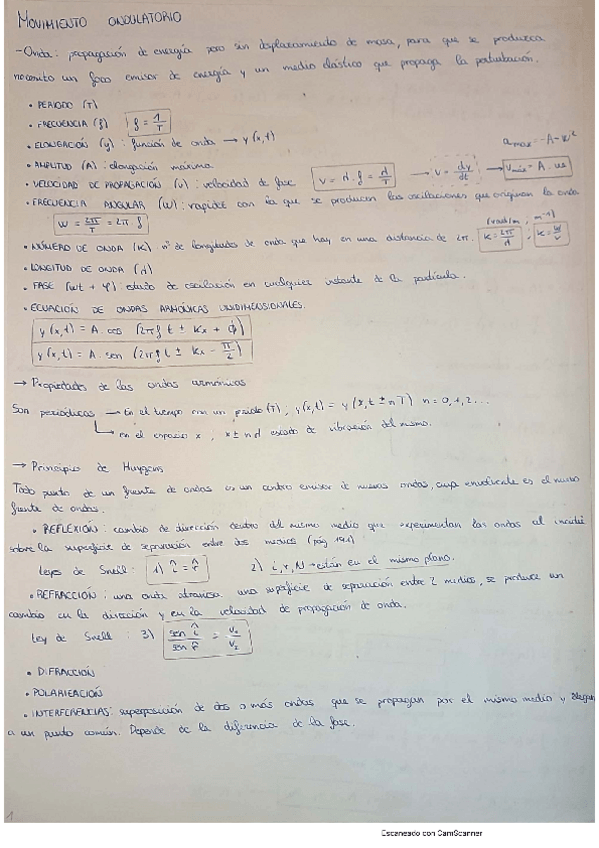 MOVIMIENTO ONDULATORIO
- Onda: propagación de energía pero sin desplazamiento de masa, para que se produzca
necesito un foco emisor de energía y un medio elástico que propaga la perturbación.
• PERIODO (T)
• FRECUENCIA (f) f = 1/T
• ELONGACIÓN (y): función de onda → y(x,t) a max = -A·w²
• AMPLITUD (A): elongación máxima
• VELOCIDAD DE PROPAGACIÓN (v): velocidad de fase V = λ·f = λ/T → v = dy/dt → Vmáx = A·w
• FRECUENCIA ANGULAR (W): rapidez con la que se producen las oscilaciones que originan la onda
W = 2π/T = 2π f (rad/m, m⁻¹)
• NÚMERO DE ONDA (K) nº de longitudes de onda que hay en una distancia de 2π. K = 2π/λ ; K = W/v
• LONGITUD DE ONDA (λ)
• FASE (wt + φ): estado de oscilación en cualquier instante de la partícula.
• ECUACIÓN DE ONDAS ARMÓNICAS UNIDIMENSIONALES.
y(x,t) = A. cos (2πf t ± Kx + ϕ)
y(x,t) = A. sen (2πf t ± Kx - π/2)
→ Propiedades de las ondas armónicas
Son periódicas → En el tiempo con un periodo (T) ; y(x,t) = y(x,t ± nT) n = 0,1,2...
→ en el espacio x , x ± nλ estado de vibración del mismo.
→ Principio de Huygens
Todo punto de un frente de ondas es un centro emisor de nuevas ondas, cuya envolvente es el nuevo
frente de ondas.
• REFLEXIÓN: cambio de dirección dentro del mismo medio que experimentan las ondas al incidir
sobre la superficie de separación entre dos medios (pág 191)
Leyes de Snell: 1) î = r̂ 2) i, r, N → están en el mismo plano.
• REFRACCIÓN: una onda atraviesa una superficie de separación entre 2 medios, se produce un
cambio en la dirección y en la velocidad de propagación de onda.
Ley de Snell : 3) sen î / sen r̂ = V₁/V₂
• DIFRACCIÓN
• POLARIZACIÓN
• INTERFERENCIAS: superposición de dos o más ondas que se propagan por el mismo medio y llegan
a un punto común. Depende de la diferencia de la fase.
1
Escaneado con CamScanner